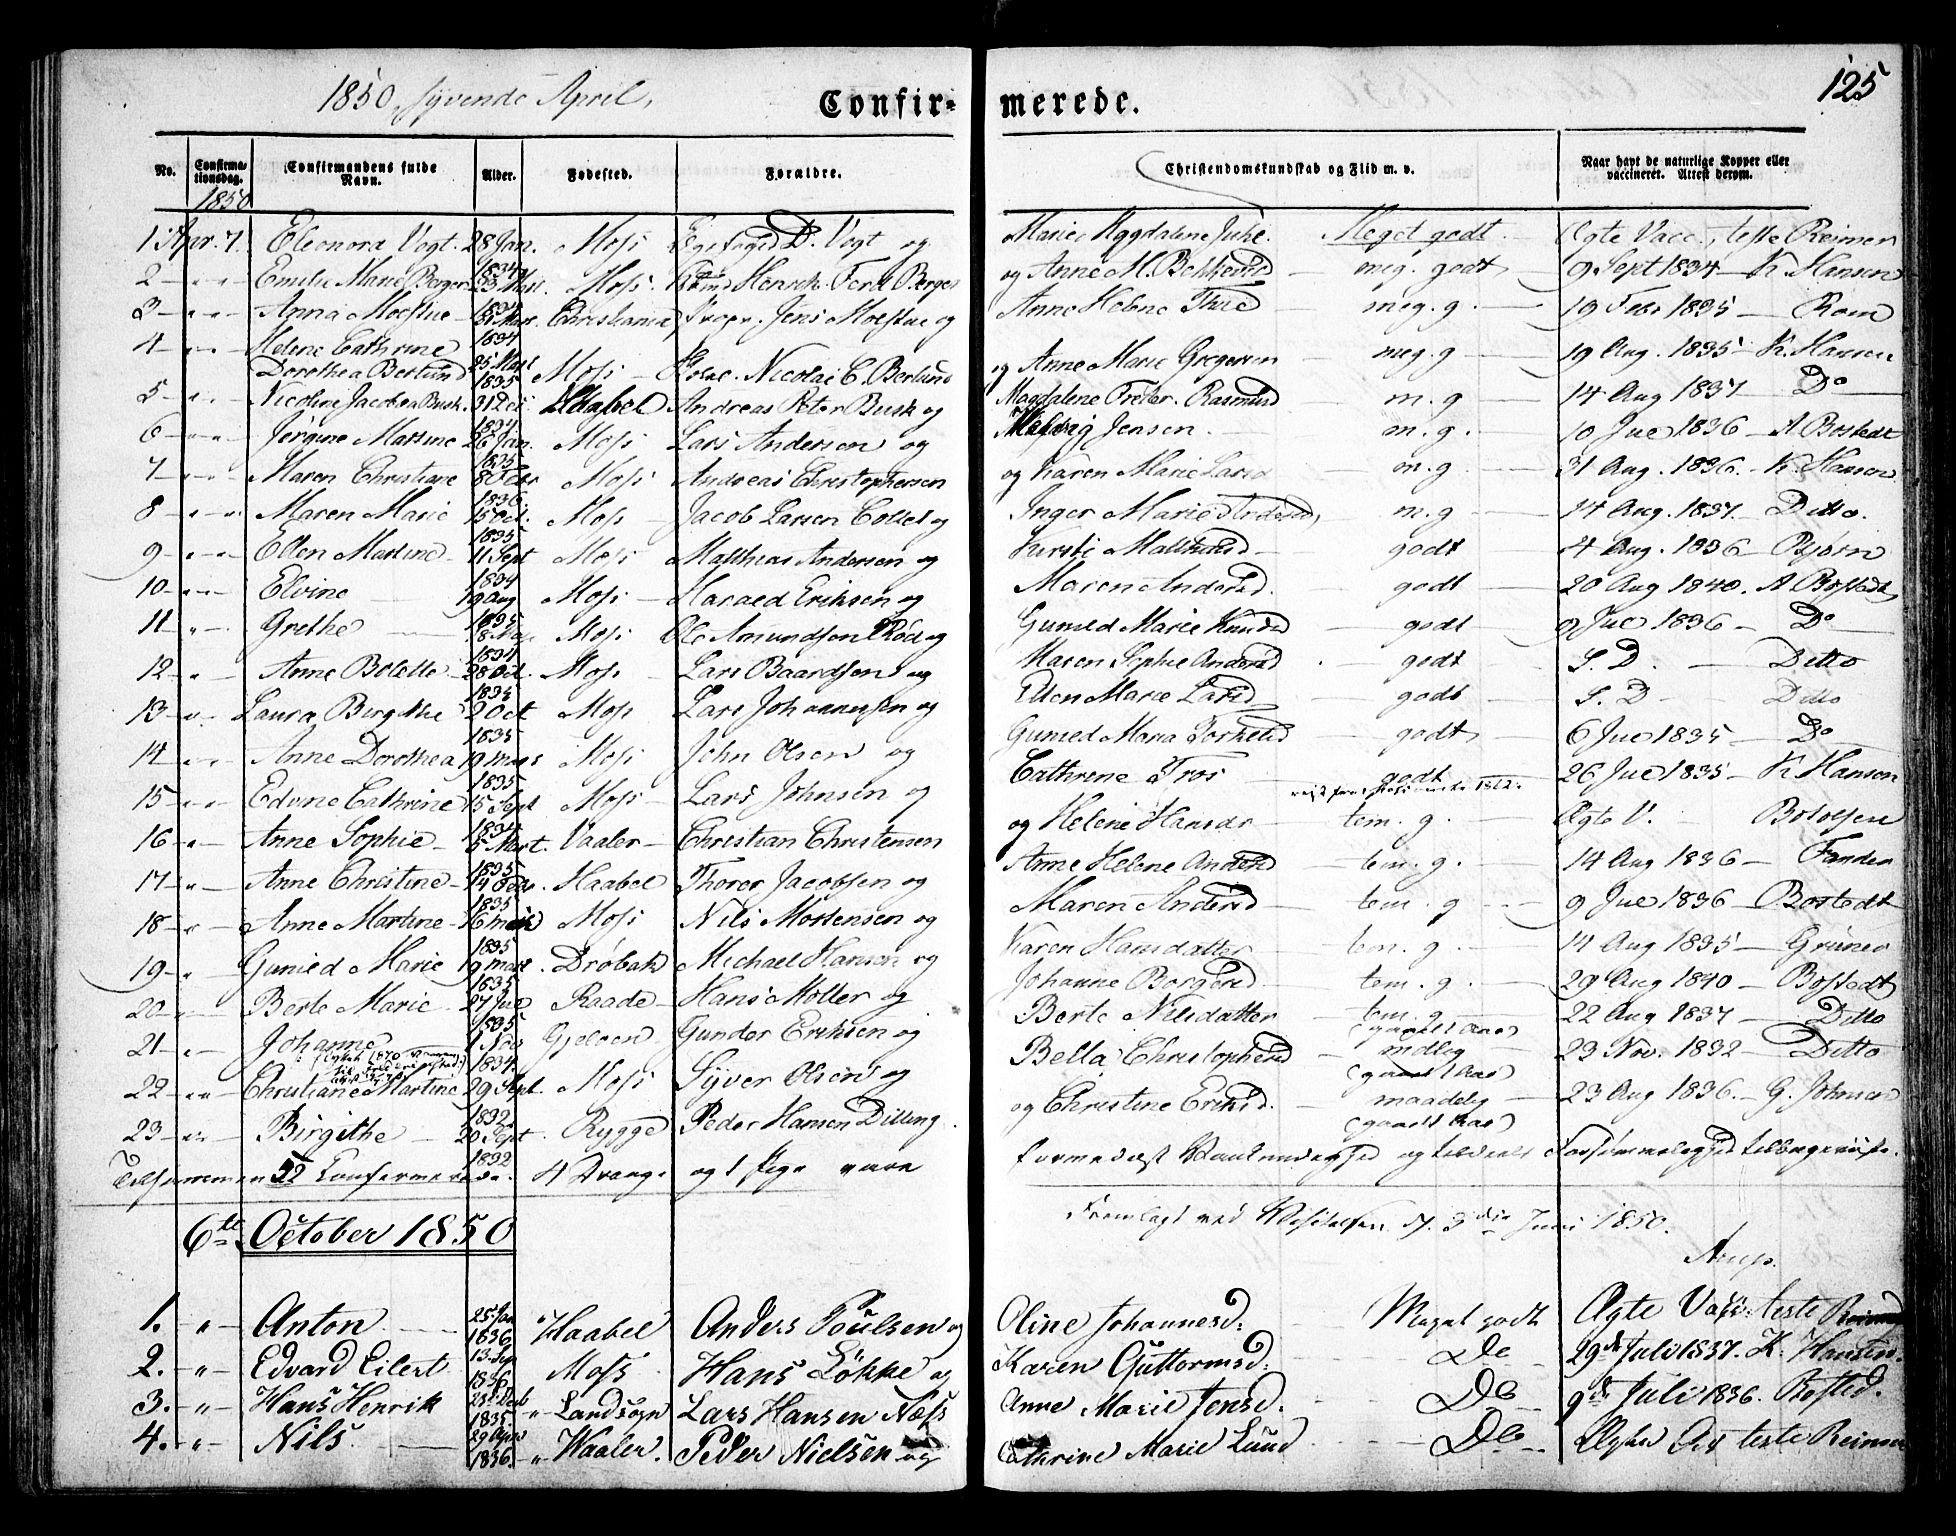 1850, syvende April,
Confirmerede.
125
No. Confirmationsdag. Confirmandens fulde Navn. Alder. Fødested. Forældre. Christendomskundskab og Flid m. v. Naar havt de naturlige Kopper eller vaccineret. Attest derom.
1850
1 Apr. 7. Eleonora Vogt 28 Jan. 1834 Moss D. Vogt og Marie Magdalene Juhl. Meget godt Ægte Vacc., teste Reimer
2 " " Emilie Marie Berger 23 Mart. 1834 Moss Henrik Ferd Berger og Anne M. meg. godt 9 Sept 1834 K. Hansen
3 " " Anna Moestue 21 Mart. 1834 Christiania Propr. Jens Moestue og Anne Helene Thue meg. g. 19 Febr 1835 Rom
4 " " Helene Cathrine Dorothea Berlund 25 Mart 1835 Moss Nicolai C. Berlund og Anne Marie Gregersen meg. g 19 Aug. 1835 K. Hansen
5 " " Nicoline Jacobea Busk. 31 Dec 1834 Haabel Andreas Peter Busk og Magdalene Freder. Rasmusd m. g 14 Aug 1837 Do
6 " " Jørgine Martine 26 Jan. 1835 Moss Lars Andersen og Jensen m. g. 10 Jul 1836 A Bostedt
7 " " Maren Christiane 8 Febr 1836 Moss Andreas Christophersen og Karen Marie Larsd m. g 31 Aug. 1836. K. Hansen
8 " " Maren Marie 15 Oct. 1835 Moss Jacob Larsen Collet og Inger Marie m. g 14 Aug. 1837. Ditto.
9 " " Ellen Martine 11 Sept 1834 Moss Matthias Andersen og Kirsti godt 4 Aug. 1836 Bjørn
10 " " Elvine 19 Aug 1835 Moss Harald Eriksen og Maren Andersd. godt 20 Aug 1840. A Bostedt
11 " Grethe 1834 Moss Ole Amundsen Röd og Gunild Marie Knudsd godt 9 Jul 1836 Do
12 " Anne Bolette 28 Oct. 1835 Moss Lars Baardsen og Maren Sophie Andersd godt S. D. Ditto
13 " Laura Birgithe 2 Oct 1835 Moss Lars Johannesen og Ellen Marie Larsd godt S. D Ditto
14 " " Anne Dorothea 19 Mars 1835 Moss John Olsen og Gunild Maria Torkelsd godt 6 Jul 1835 Do
15 " " Edvine Cathrine 15 Sept 1834 Moss Lars Johnsen og Cathrine Fros godt 26 Jul 1835 K Hansen
16 " Anne Sophie 5 Mart. 1835 Vaaler Christian Christensen og Helene Hansdr tem. g. Ægte V. Bololsen
17 " Anne Christine 14 Febr. 1835 Haabel Thorer Jacobsen og Anne Helene Andersd tem. g. 14 Aug 1836
18 " Anne Martine 16 1835 Moss Nils Mortensen og Maren Andersd tem. g 9 Jul 1836 Bostedt
19 " Gunild Marie 19 Mart. 1835 Drøbak Michael Hansen og Karen Hansdatter tem. g. 14 Aug 1835 Grüner
20 " Berte Marie 27 Jul 1835 Raade Hans Møller og Johanne Borgersd tem. g. 29 Aug 1840 Bostedt
21 " Johanne 1 Nov 1834. Gjeløen Gunder Eriksen og Berte Nilsdatter tem. g 22 Aug 1837 Ditto
22 " " Christiane Martine 29 Sept. 1832 Moss Syver Olsen og Bella Christophersd mdlig 23 Nov. 1832 Ditto
23 " " Birgithe 20 Sept 1832 Rygge Peder Hansen Dilling og Christine Eriksd. maadelig 23 Aug 1836. G. Johnsen
Tilsammen 52 Confirmerede. 4 Drenge og 1 Pige
Fremlagt ved Visitatsen d. 3die Juni 1850.
Arup.
6te October 1850
1. " Anton 25 Jan 1836 Haabel Anders Poulsen og Oline Johannesd: Meget godt Ægte Vass: teste Reimer
2. " Edvard Eilert 13. Sep 1836 Moss Hans Løkke og Karen Guttormsd: Do 29de Juli 1837. K. Hansen.
3. " Hans Henrik 23de Decb 1835 " Landsogn Lars Hansen Næss Anne Marie Jensd. Do 9de Juli 1836. Bosted.
4. " Nils 29 Apr 1836. " Waaler. Peder Nielsen og Cathrine Marie Lund Do teste Reimer